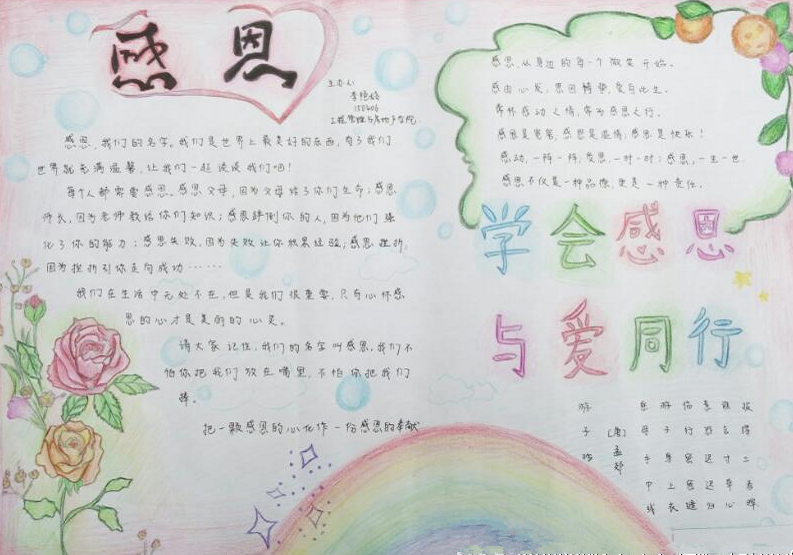 感恩
主办人:
150406
感恩，我们的名字，我们是世界上最美好的东西，有了我们
世界就充满温馨，让我们一起谈谈我们吧！
每个人都需要感恩。感恩父母，因为父母给了你们生命；感恩
师长，因为老师教给你们知识；感恩绊倒你的人，因为他们强
化了你的能力；感恩失败，因为失败让你积累经验；感恩挫折，
因为挫折引你走向成功……
我们在生活中无处不在，但是我们很重要，只有心怀感
恩的心才是美丽的心灵。
请大家记住，我们的名字叫感恩，我们不
怕你把我们放在嘴里，不怕你把我们
捧。
把一颗感恩的心化作一份感恩的奉献
感恩，从身边的每一个微笑开始。
感由心发，恩因情挚，爱自此生。
常怀感动之情，常为感恩之行。
感动，一阵一阵，发恩，一时一时；感恩，一生一世。
感恩不仅是一种品德，更是一种责任。
学会感恩
与爱同行
游子吟
[唐]孟郊
慈母手中线
游子身上衣
临行密密缝
意恐迟迟归
谁言寸草心
报得三春晖